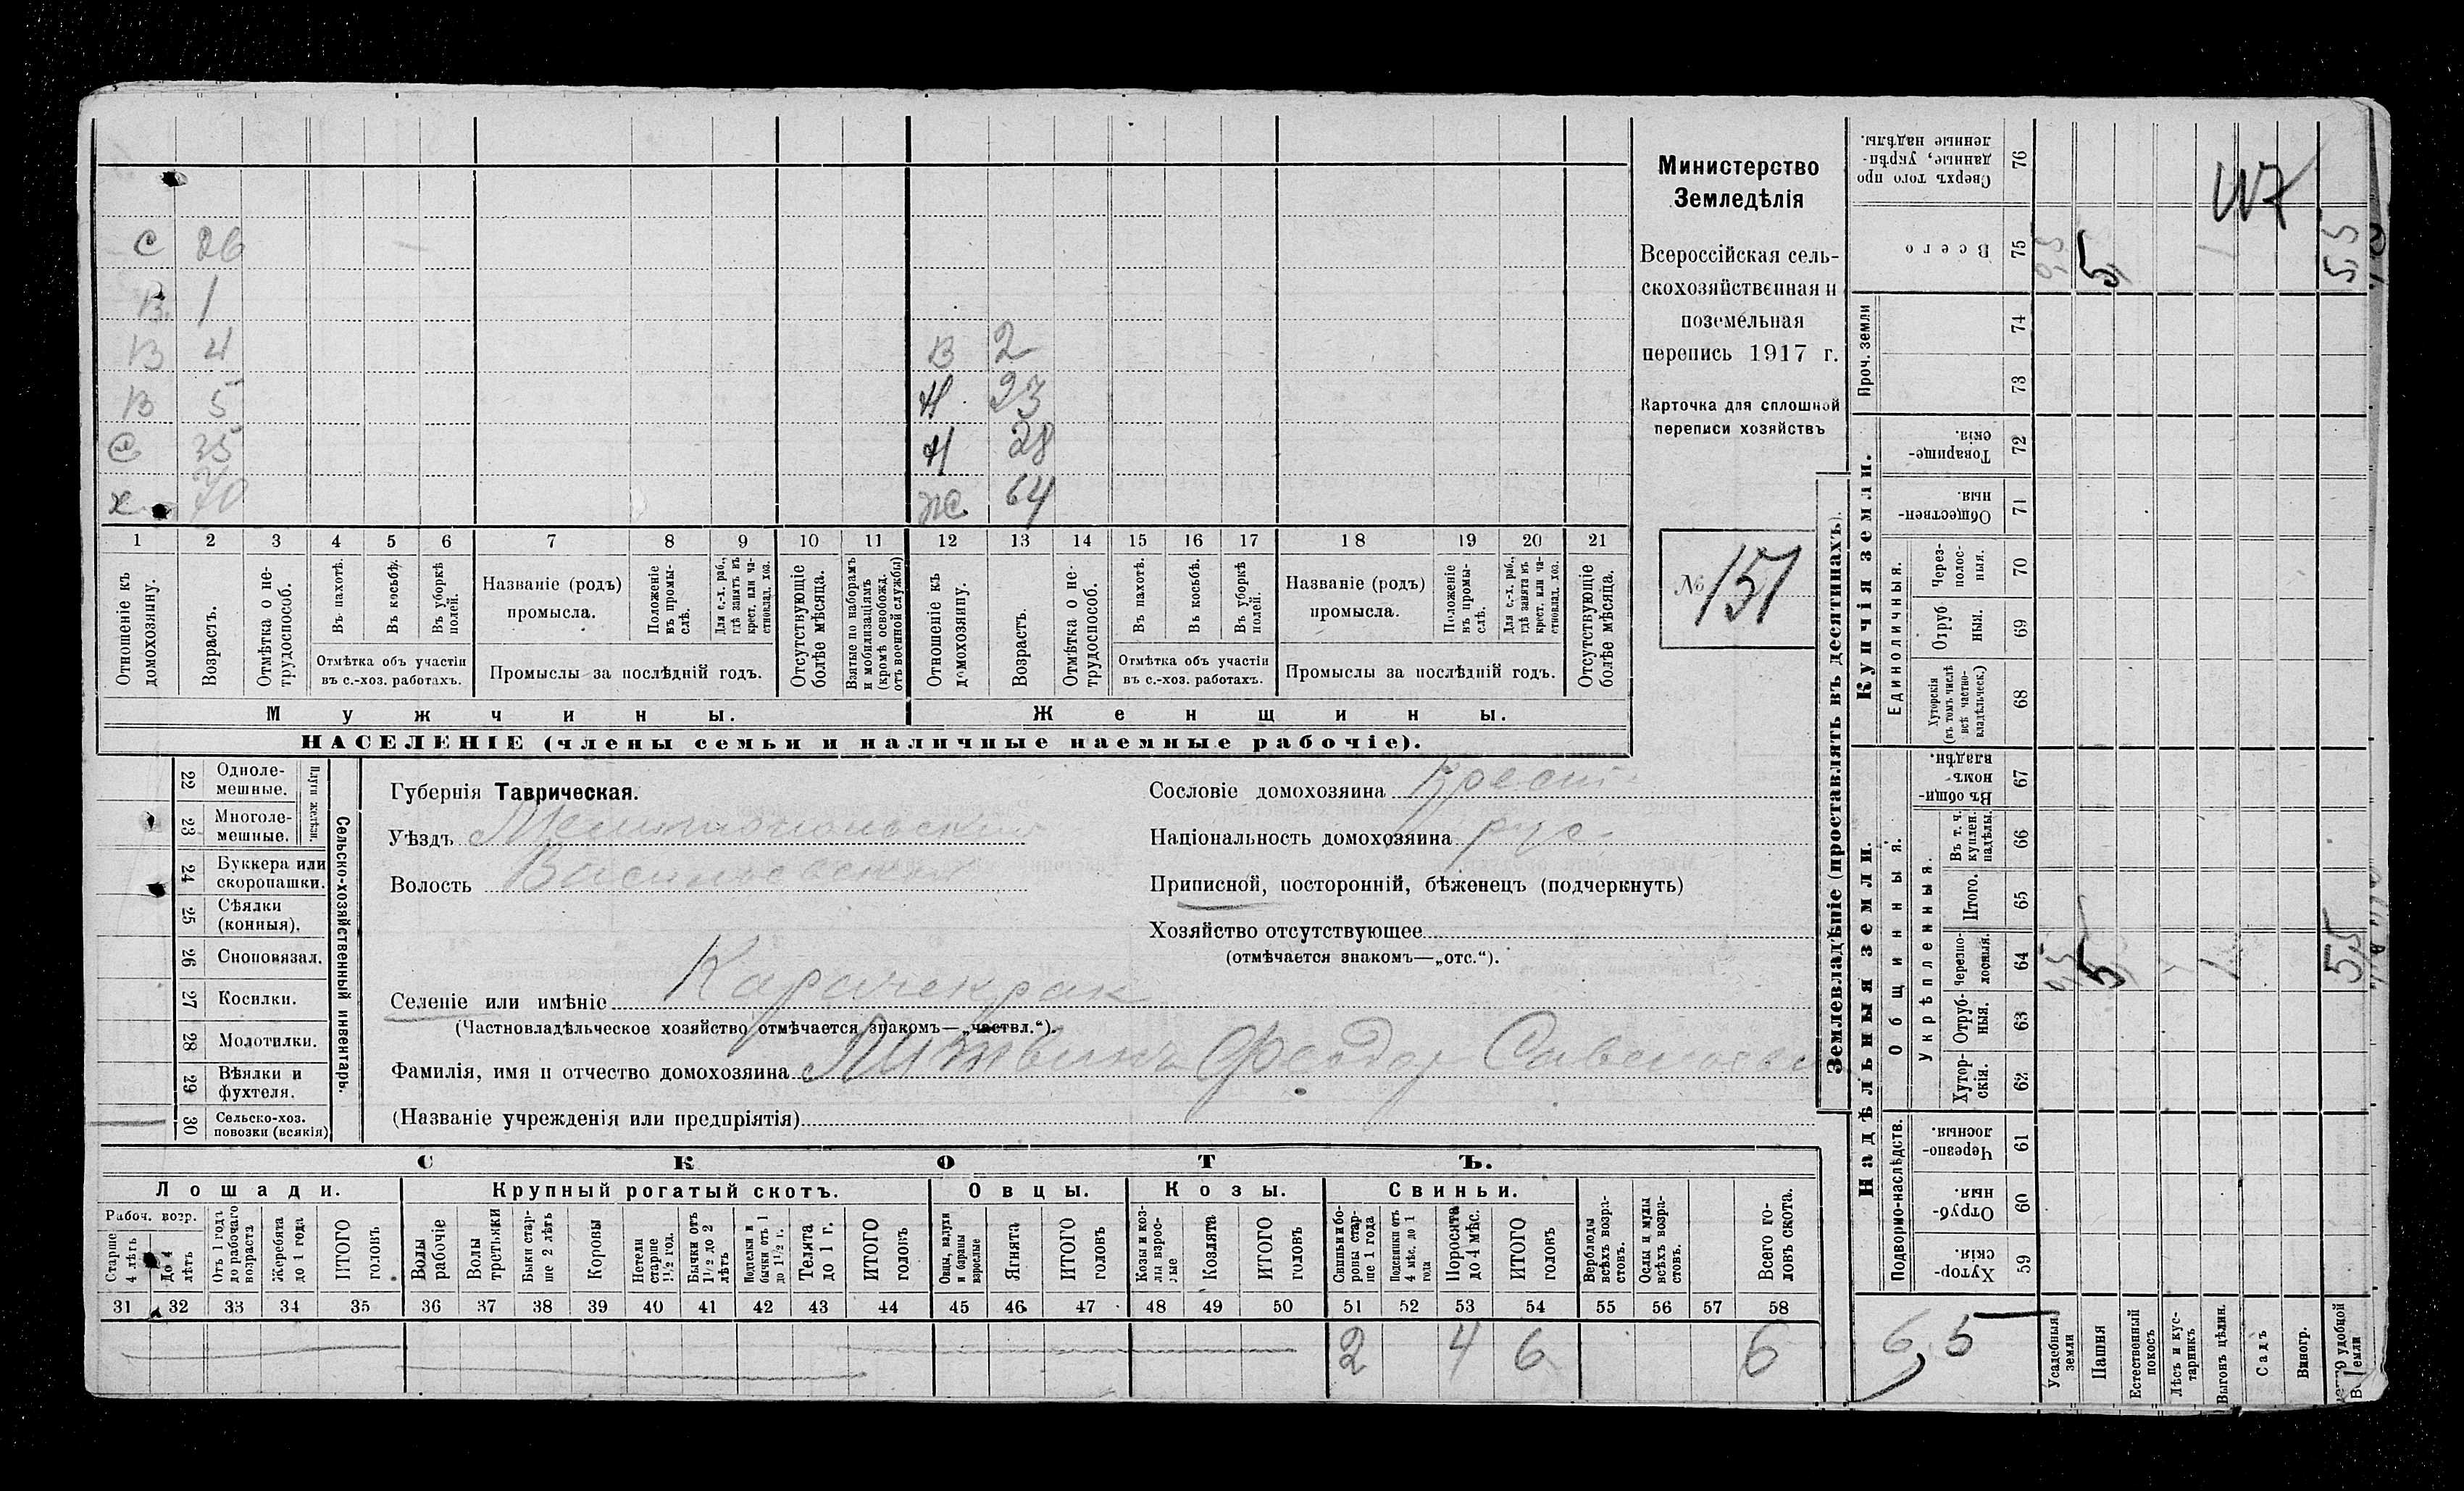 С 26
В 1
В 4
В 5
С 35
х 70
В 2
Н 23
Н 28
же 64
1 2 3 4 5 6 7 8 9 10 11 12 13 14 15 16 17 18 19 20 21
Отношеніе къ домохозяину.
Возрастъ.
Отмѣтка о нетрудоспособ.
Въ пахотѣ.
Въ косьбѣ.
Въ уборкѣ полей.
Отмѣтка объ участіи въ с.-хоз. работахъ.
Названіе (родъ) промысла.
Положеніе въ промыслѣ.
Для с.-х. раб., гдѣ занятъ въ крест. или частновлад. хоз.
Промыслы за послѣдній годъ.
Отсутствующіе болѣе мѣсяца.
Взятые по наборамъ и мобилизаціямъ (кромѣ освобожд. отъ военной службы)
Отношеніе къ домохозяину.
Возрастъ.
Отмѣтка о нетрудоспособ.
Въ пахотѣ.
Въ косьбѣ.
Въ уборкѣ полей.
Отмѣтка объ участіи въ с.-хоз. работахъ.
Названіе (родъ) промысла.
Положеніе въ промыслѣ.
Для с.-х. раб., гдѣ занята въ крест. или частновлад. хоз.
Промыслы за послѣдній годъ.
Отсутствующіе болѣе мѣсяца.
Мужчины.
Женщины.
НАСЕЛЕНІЕ (члены семьи и наличные наемные рабочіе).
Министерство
Земледѣлія
Всероссійская сель-
скохозяйственная и
поземельная
перепись 1917 г.
Карточка для сплошной
переписи хозяйствъ
№ 151
Сельско-хозяйственный инвентарь.
Плуги желѣзн.
22 Однолемешные.
23 Многолемешные.
24 Буккера или скоропашки.
25 Сѣялки (конныя).
26 Сноповязал.
27 Косилки.
28 Молотилки.
29 Вѣялки и фухтеля.
30 Сельско-хоз. повозки (всякія)
Губернія Таврическая.
Уѣздъ Мелитопольский
Волость Васильевская
Селеніе или имѣніе Карачекрак
(Частновладѣльческое хозяйство отмѣчается знакомъ—„частвл.“).
Фамилія, имя и отчество домохозяина Литвинъ Феодор Савельев
(Названіе учрежденія или предпріятія)
Сословіе домохозяина Крест.
Національность домохозяина рус.
Приписной, посторонній, бѣженецъ (подчеркнуть)
Хозяйство отсутствующее
(отмѣчается знакомъ—„отс.“).
СКОТЪ.
Лошади. Крупный рогатый скотъ. Овцы. Козы. Свиньи.
Рабоч. возр.
Старше 4 лѣтъ
До 4 лѣтъ
Отъ 1 года до рабочаго возраста
Жеребята до 1 года
ИТОГО головъ
Волы рабочіе
Волы третьяки
Быки старше 2 лѣтъ
Коровы
Нетели старше 1½ год.
Бычки отъ 1½ до 2 лѣтъ
Подтелки и бычки отъ 1 до 1½ г.
Телята до 1 г.
ИТОГО головъ
Овцы, валухи и бараны взрослые
Ягнята
ИТОГО головъ
Козы и козлы взрослые
Козлята
ИТОГО головъ
Свиньи и боровы старше 1 года
Подсвинки отъ 4 мѣс. до 1 года
Поросята до 4 мѣс.
ИТОГО головъ
Верблюды всѣхъ возрастовъ.
Ослы и мулы всѣхъ возрастовъ.
Всего головъ скота.
31 32 33 34 35 36 37 38 39 40 41 42 43 44 45 46 47 48 49 50 51 52 53 54 55 56 57 58
2 4 6 6
Землевладѣніе (проставлять въ десятинахъ).
Купчія земли.
Надѣльныя земли.
Проч. земли
Единоличныя.
Общинныя.
Укрѣпленныя.
Подворно-наслѣдств.
Сверхъ того проданные, укрѣпленные надѣлы. 76
Всего 75
74
73
Товарищескія. 72
Общественныя. 71
Черезполосныя. 70
Отрубныя. 69
Хуторскія (въ томъ числѣ всѣ частновладѣльческ.) 68
Въ общинномъ владѣн. 67
Въ т. ч. куплен. надѣлы. 66
Итого. 65
Черезполосныя. 64
Отрубныя. 63
Хуторскія. 62
Черезполосныя. 61
Отрубныя. 60
Хуторскія. 59
Усадебныя земли
Пашня
Естественный покосъ
Лѣсъ и кустарникъ
Выгонъ цѣлин.
Садъ
Виногр.
удобной земли
5
55
5
55
6,5